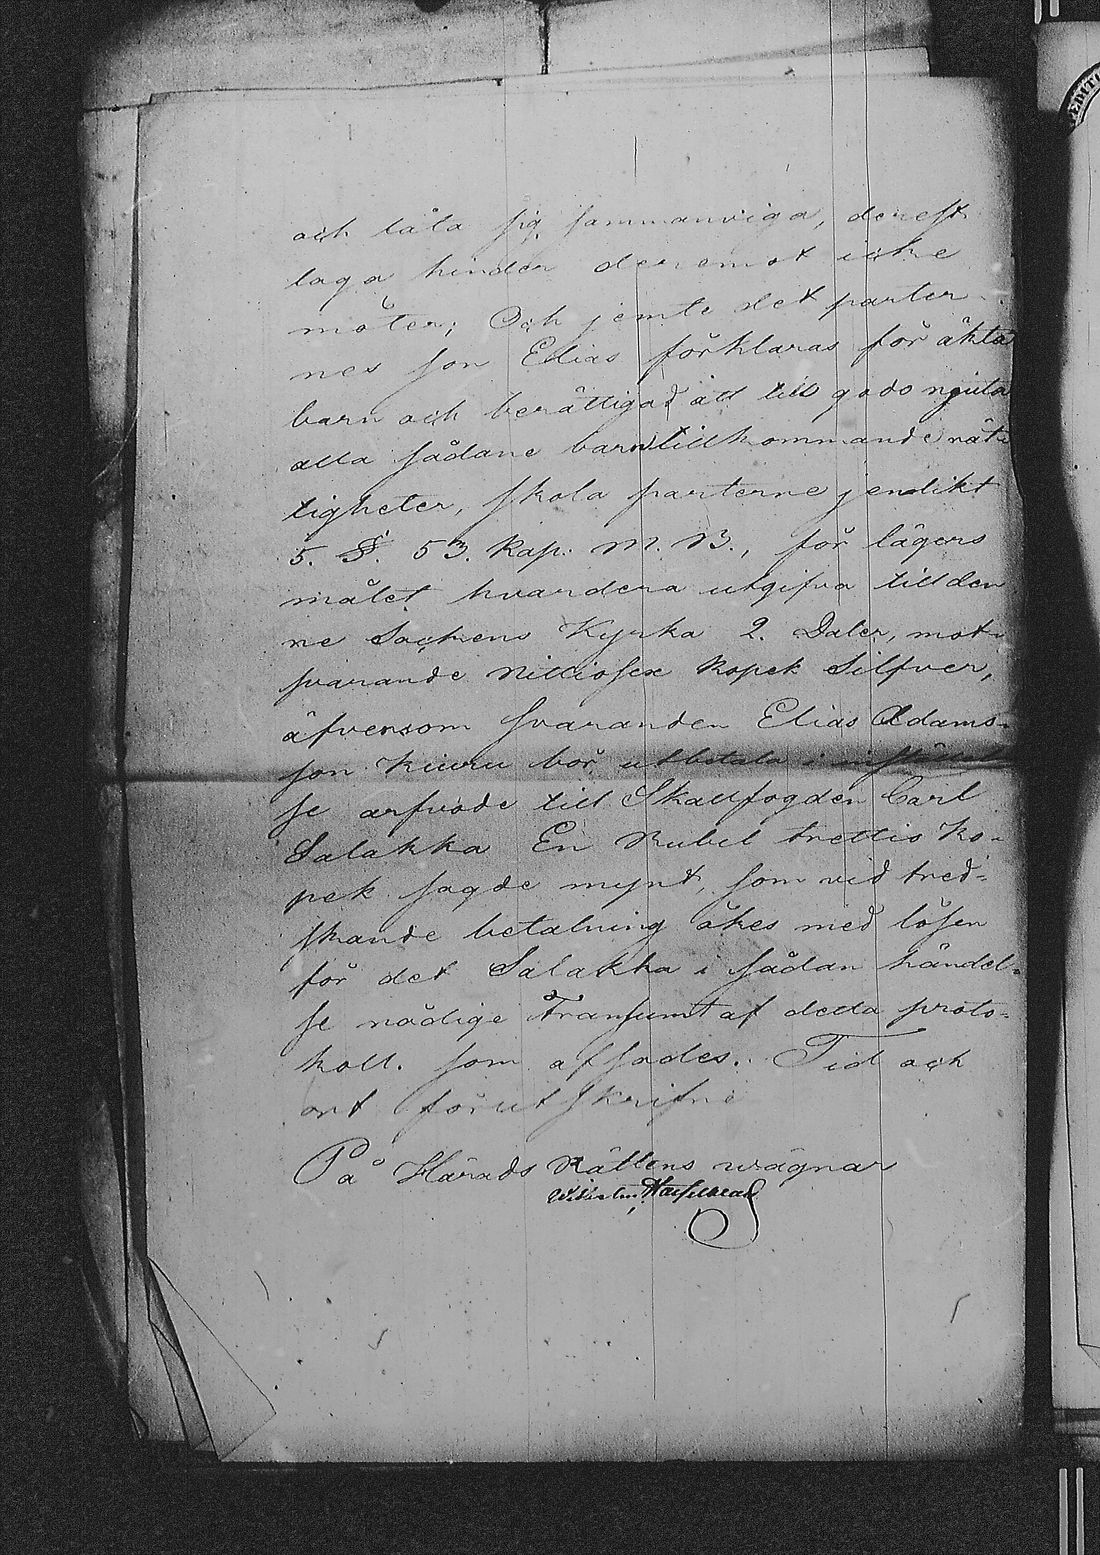 och låta sig sammanviga, derest
laga hinder deremot icke
möter; Och jemte det parter-
nes son Elias förklaras för äkta
barn och berättigad att till godo njuta
alla sådane barn tillkommande rät-
tigheter, skola parterne jemlikt
5. §. 53. Kap. M. B., för lägers
målet hvardera utgifva till den
ne Sockens Kyrka 2. Daler, mot-
svarande Nittiosex Kopek Silfver,
äfvensom Svaranden Elias Adams-
son Kiuru bör utbetala i inställel
se arfvode till Skallfogden Carl
Salakka En Rubel trettio Ko-
pek sagde mynt, som vid tred-
skande betalning ökes med lösen
för det Salakka i sådan händel-
se nödige Transumt af detta proto-
koll. som afsades. Tid och
ort förutskrifne
På Härads Rättens wägnar